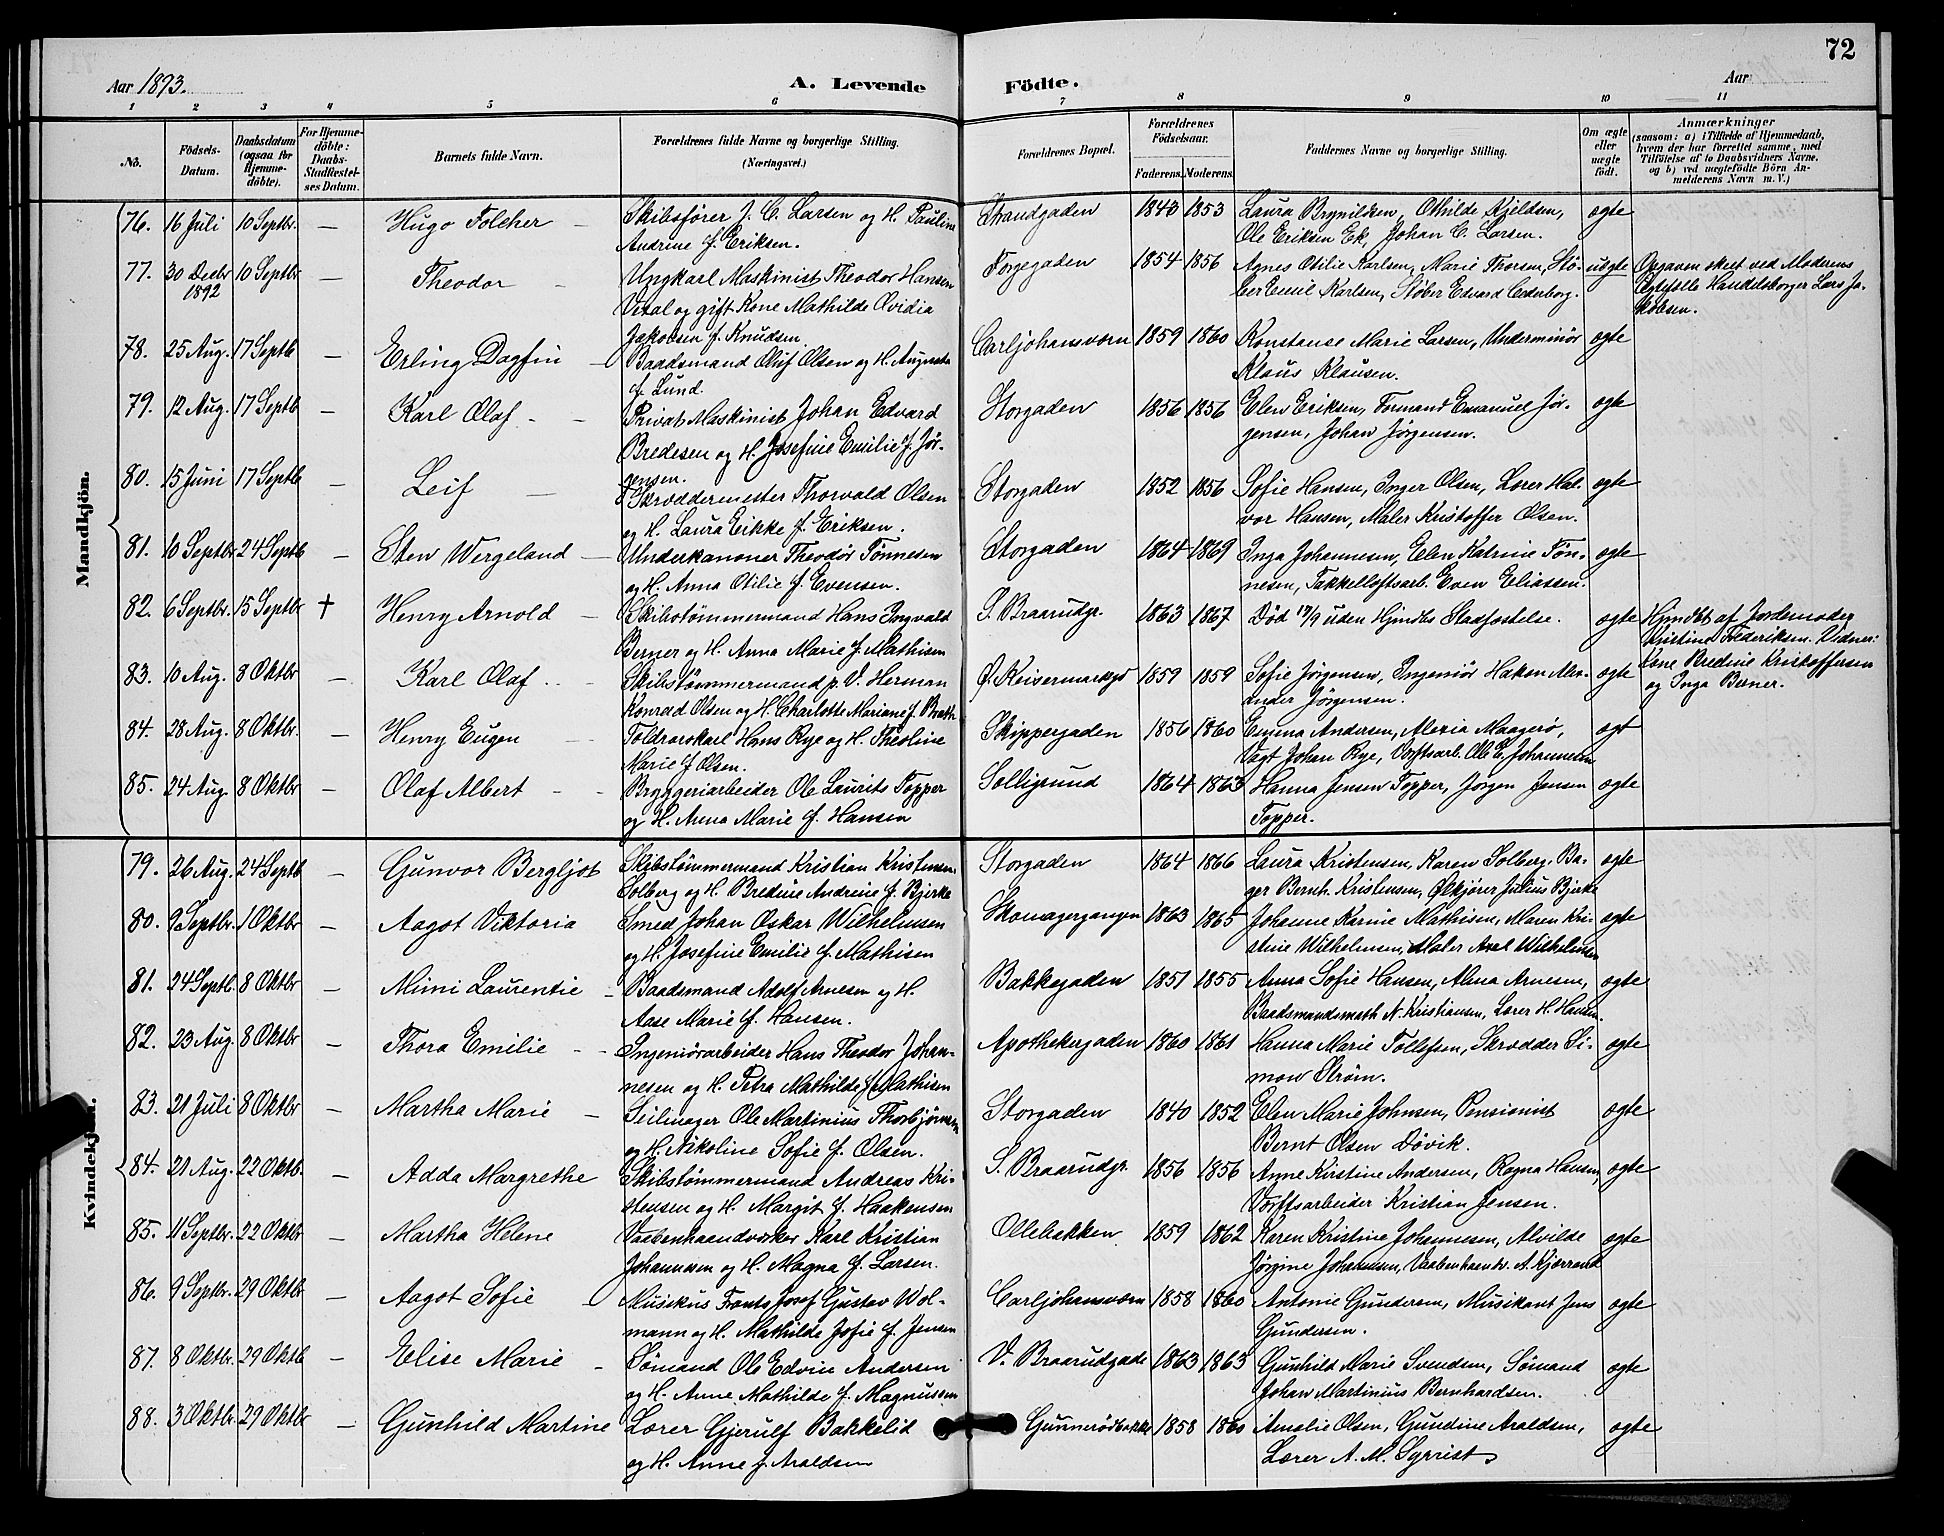 72
Aar 1893.
A. Levende Födte.
Aar
1 2 3 4 5 6 7 8 9 10 11
No.
Födsels-Datum.
Daabsdatum (ogsaa for Hjemme-döbte).
For Hjemme-döbte: Daabs-Stadfæstel-ses Datum.
Barnets fulde Navn.
Forældrenes fulde Navne og borgerlige Stilling. (Næringsvei.)
Forældrenes Bopæl.
Forældrenes Födselsaar.
Faderens. Moderens.
Faddernes Navne og borgerlige Stilling.
Om ægte eller uægte født.
Anmærkninger
(saasom: a) i Tilfælde af Hjemmedaab, hvem der har forrettet samme, med Tilföielse af to Daabsvidners Navne, og b) ved uægtefödte Börn An-melderens Navn m. V.)
Mandkjön.
76. 16 Juli 10 Septbr. — Hugo Folcher — Skibsfører J. C. Larsen og H. Pauline Strandgaden 1843 1853 Laura Brynildsen, Othilde Kjeldsen, ægte
Andrine f. Eriksen. Ole Eriksen Ek, Johan C. Larsen.
77. 30 Decbr 1892 10 Septbr — Theodor — Ungkarl Maskinist Theodor Hansen Torgegaden 1854 1856 Agnes Otilie Karlsen, Marie Thorsen, Stø- uægte Opgaven skeet ved Moderens
Vetal og gift Kone Mathilde Ovidia ber Emil Karlsen, Støber Edvard Cederborg. Ægtefælle Handelsborger Lars Ja-
Jakobsen f. Knudsen. kobsen.
78. 25 Aug. 17 Septb — Erling Dagfin — Baadsmand Oluf Olsen og H. Augusta Carljohansværn 1859 1860 Konstanse Marie Larsen, Underminør ægte
f. Lund. Klaus Klausen.
79. 12 Aug. 17 Septb — Karl Olaf — Privat Maskinist Johan Edvard Storgaden 1856 1856 Elen Eriksen, Formand Emanuel Jør- ægte
Bredesen og H. Josefine Emilie f. Jør- gensen, Johan Jørgensen.
gensen.
80. 15 Juni 17 Septb — Leif — Skræddermester Thorvald Olsen Storgaden 1852 1856 Sofie Hansen, Inger Olsen, Lærer Hal- ægte
og H. Laura Eikke f. Eriksen. vor Hansen, Maler Kristoffer Olsen.
81. 10 Septbr 24 Septb — Sten Wergeland — Underkanoner Theodor Tønnesen Storgaden 1864 1869 Inga Johannesen, Elen Katrine Tøn- ægte
og H. Anna Otilie f. Evensen. nesen, Takkelloftsarb. Even Eliassen.
82. 6 Septbr. 15 Septbr † Henry Arnold — Skibstømmermand Hans Ingvald S. Braarudgr. 1863 1867 Død 17/9 uden Hjmdbs Stadfæstelse. ægte Hjmdbt af Jordemoder
Berner og H. Anna Marie f. Mathisen Kristine Frederiksen. Vidner:
83. 10 Aug. 8 Oktbr — Karl Olaf — Skibstømmermand p. V. Herman Ø. Keisermarksgd 1859 1859 Sofie Jørgensen, Ingeniør Hakon Alex- ægte Kone Bredine Kristoffersen
Konrad Olsen og H. Charlotte Mariane f. Brath ander Jørgensen. og Inga Berner.
84. 28 Aug. 8 Oktbr. — Henry Eugen — Toldrorskarl Hans Rye og H. Theoline Skippergaden 1856 1860 Emma Andersen, Alexia Maagerø, ægt
Marie f. Olsen. Vagt Johan Rye, Værftsarb. Ole E. Johannesen
85. 24 Aug. 8 Oktbr — Olaf Albert — Bryggeriarbeider Ole Laurits Topper Solligrund 1864 1863 Hanna Jensen Topper, Jørgen Jensen ægte
og H. Anna Marie f. Hansen Topper.
Kvindekjön.
79. 26 Aug. 24 Septb — Gunvor Bergljot Skibstømmermand Kristian Kristensen Storgaden 1864 1866 Laura Kristensen, Karen Solberg. Ba- ægte
Solberg og H. Bredine Andreine f. Bjerke ger Bernh. Kristensen, Ølkjører Julius Bjerke
80. 9 Septbr. 1 Oktbr — Aagot Viktoria Smed Johan Oskar Wilhelmsen Skomagergangen 1863 1865 Johanne Karine Mathisen, Maren Kri- ægte
og H. Josefine Emilie f. Mathisen stine Wilhelmsen, Maler Axel Wilhelmsen
81. 24 Septb. 8 Oktbr — Mimi Laurentie — Baadsmand Adolf Arnesen og H. Bakkegaden 1851 1855 Anna Sofie Hansen, Alma Arnesen, ægte
Aase Marie f. Hansen. Baadsmandsmath N. Kristiansen, Lærer H. Hansen.
82. 23 Aug. 8 Oktbr — Thora Emilie — Ingeniørarbeider Hans Theodor Johan- Apothekergaden 1860 1861 Hanna Marie Tollefsen, Skrædder Si- ægte
nesen og H. Petra Mathilde f. Mathisen mon Strøm.
83. 21 Juli 8 Oktbr — Martha Marie — Seilmager Ole Martinius Thorbjørnsen Storgaden 1840 1852 Elen Marie Johnsen, Pensionist ægte
og H. Nikoline Sofie f. Olsen. Bernt Olsen Døvik.
84. 21 Aug. 22 Oktb. — Adda Margrethe Skibstømmermand Andreas Kri- S. Braarudgr. 1856 1856 Anne Kirstine Andersen, Ragna Hansen, ægte
stensen og H. Margit f. Haakensen Værftsarbeider Kristian Jensen.
85. 11 Septbr. 22 Oktbr — Martha Helene Vaabenhaandværker Karl Kristian Ollebakken 1859 1862 Karen Kristine Johannesen, Alvilde ægte
Johannesen og H. Magna f. Larsen. Jørgine Johannesen, Vaabenhaandv. A. Kjærrand
86. 9 Septbr. 29 Oktbr — Aagot Sofie — Musikus Frants Josef Gustav Wol- Carljohansværn 1858 1860 Antonie Gundersen, Musikant Jens ægte
mann og H. Mathilde Josie f. Jensen Gundersen.
87. 8 Oktbr. 29 Oktb — Elise Marie — Sømand Ole Edvin Andersen V. Braarudgade 1863 1863 Gunhild Marie Svendsen, Sømand ægte
og H. Anne Mathilde f. Magnussen Johan Martinius Bernhardsen.
88. 3 Oktbr. 29 Oktbr — Gunhild Martine Lærer Gjerulf Bakkelid Gunnerødbakke 1858 1860 Amalie Olsen, Gundine Araldsen, ægte
og H. Anne f. Araldsen Lærer A. M. Syrrist